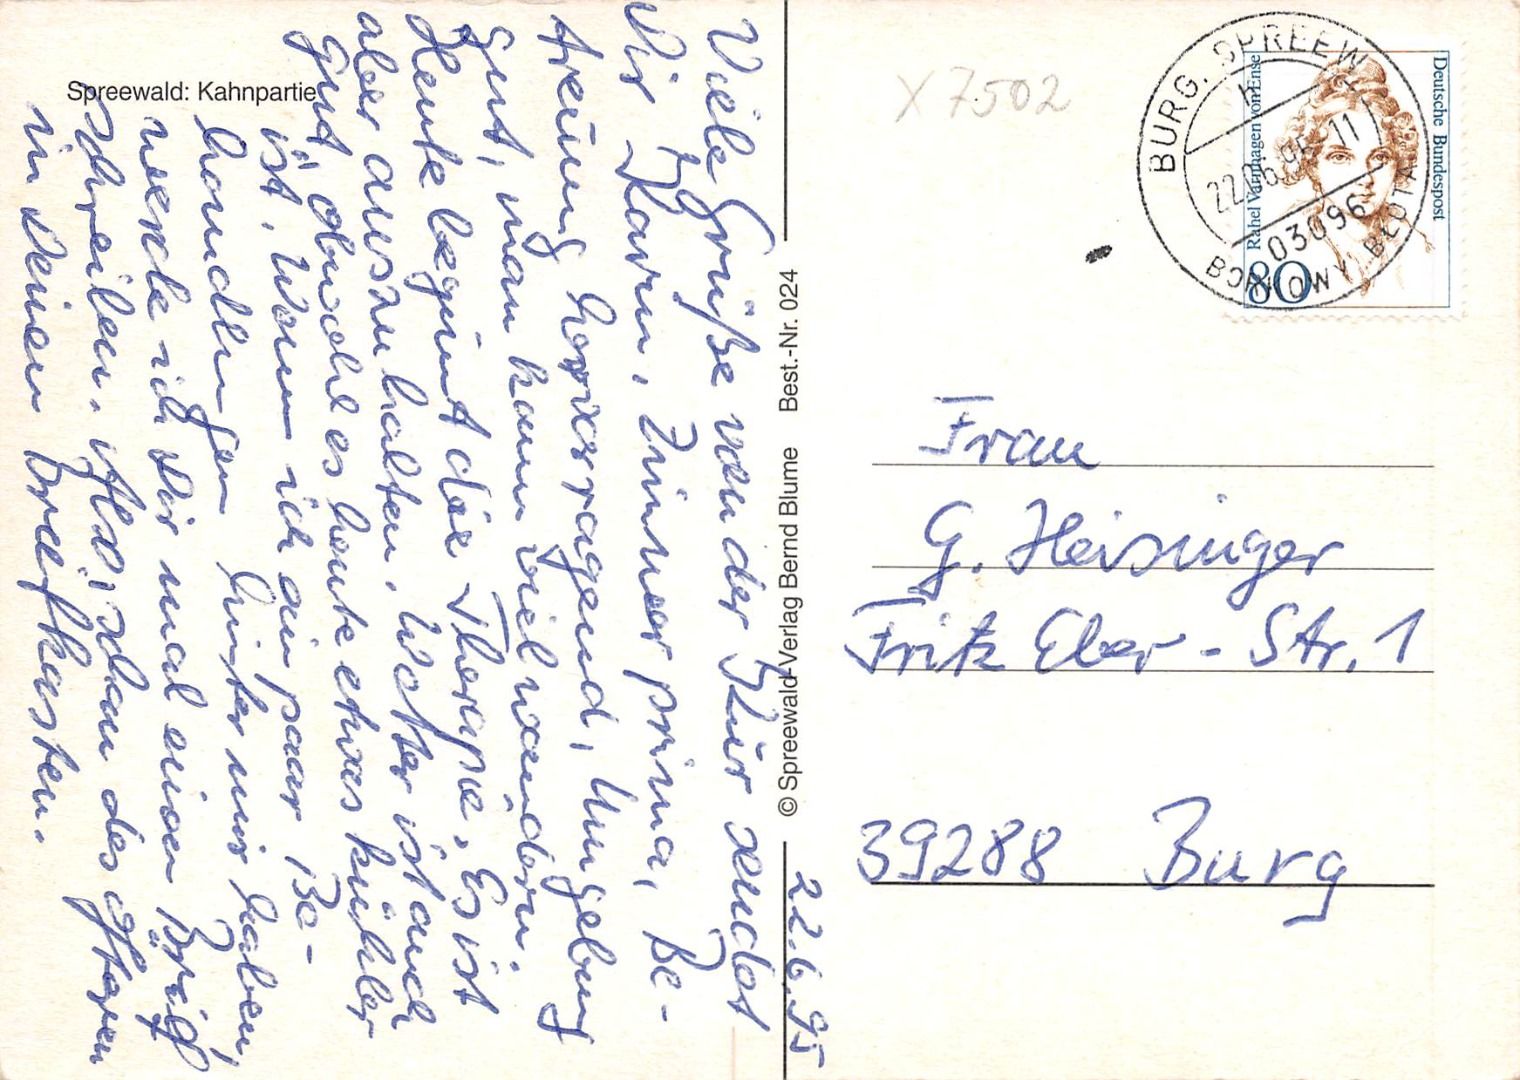 Spreewald: Kahnpartie
Viele Grüße von der Kur sendet
Dir Karin. Zimmer prima, Be-
treuung hervorragend, Umgebung
gut, man kann viel wandern.
Heute beginnt die Therapie. Es ist
aber auszuhalten. Wetter ist auch
gut, obwohl es heute etwas kühler
ist. Wenn ich ein paar Be-
handlungen hinter mir habe,
werde ich Dir mal einen Brief
schreiben. Also, schau des öfteren
in Deinen Briefkasten.
22.6.95
© Spreewald-Verlag Bernd Blume Best.-Nr. 024
X 7502
BURG, SPREEW
22.06.95-11
03096
BÓRKOWY, BŁOTA
Deutsche Bundespost
Rahel Varnhagen von Ense
80
Frau
G. Heisinger
Fritz Eber-Str. 1
39288 Burg